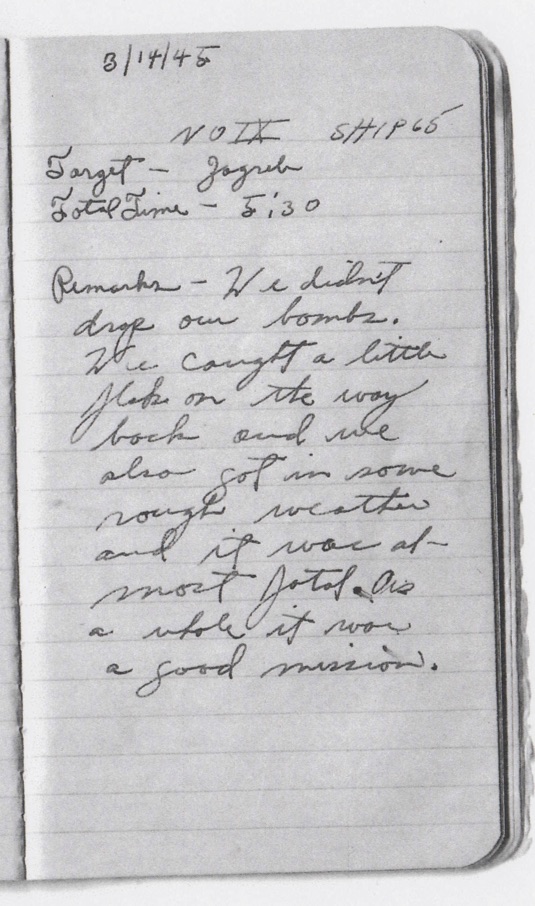 3/14/45
NO IX SHIP 65
Target - Zagreb
Total Time - 5:30
Remarks - We didn't
drop our bombs.
We caught a little
flak on the way
back and we
also got in some
rough weather
and it was al-
most fatal. As
a whole it was
a good mission.